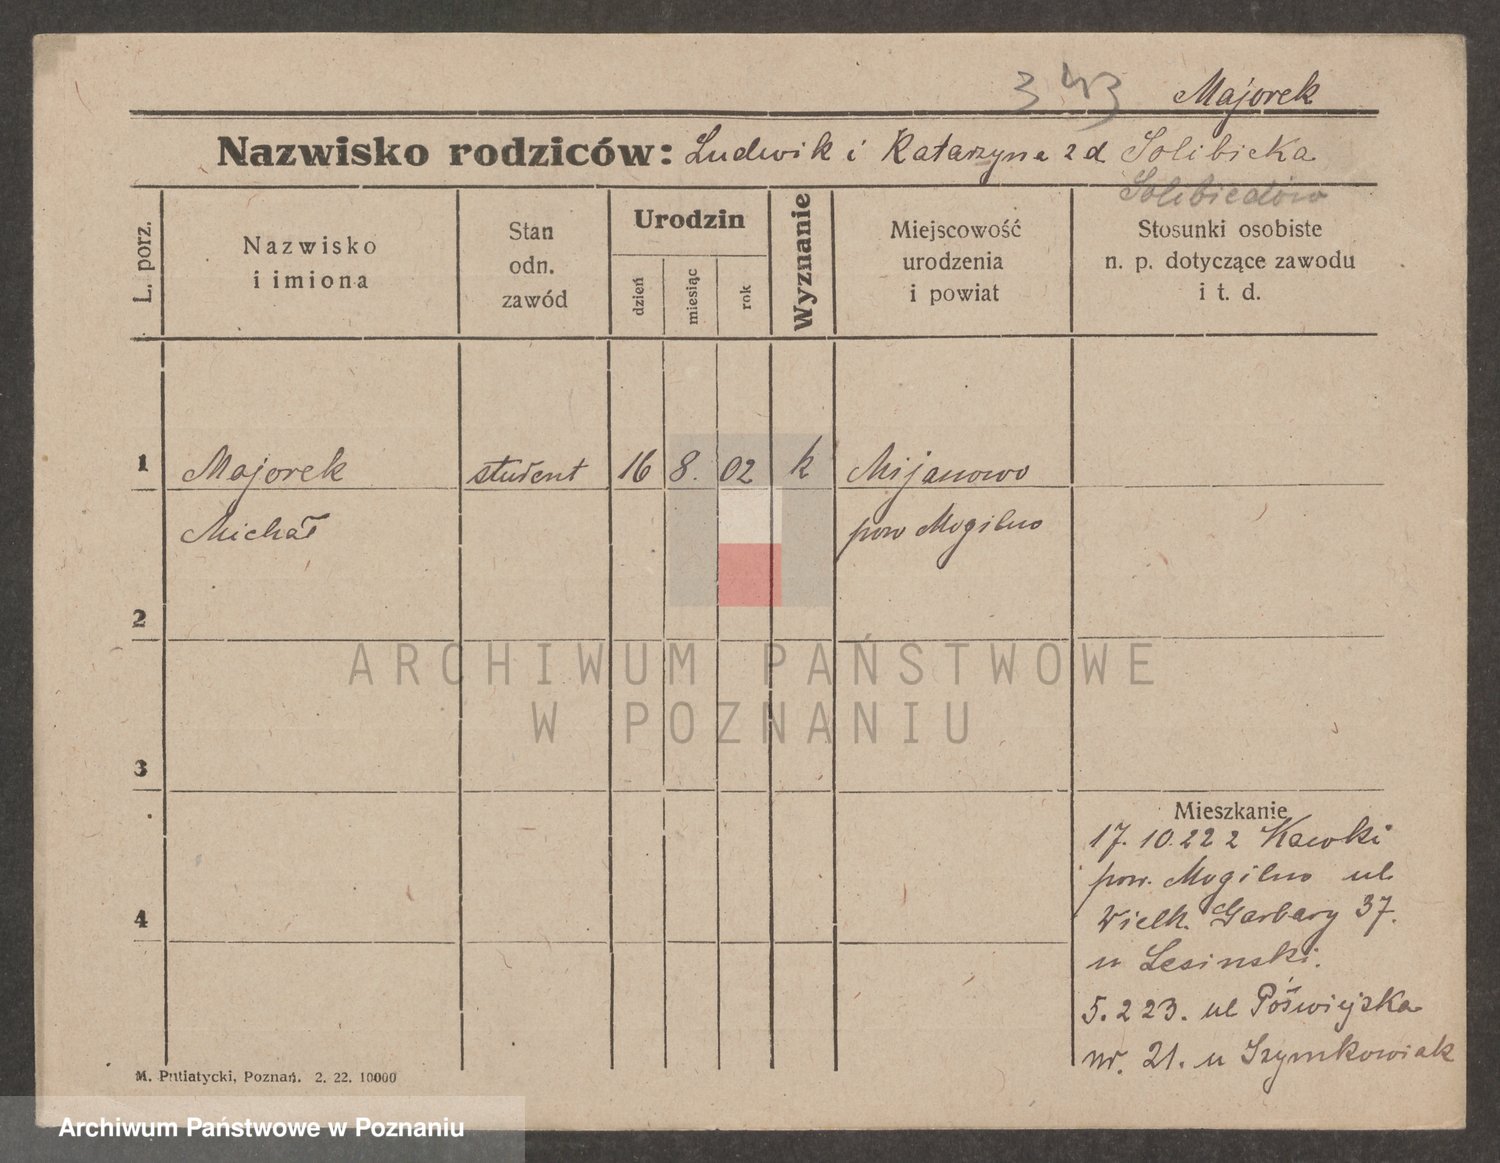 343 Majorek
Nazwisko rodziców: Ludwik i Katarzyna zd Solibieka
L. porz.
Nazwisko
i imiona
Stan
odn.
zawód
Urodzin
dzień
miesiąc
rok
Wyznanie
Miejscowość
urodzenia
i powiat
Stosunki osobiste
n. p. dotyczące zawodu
i t. d.
1 Majorek student 16 8. 02 k Mijanowo
Michał pow Mogilno
2
3
4
ARCHIWUM PAŃSTWOWE
W POZNANIU
Mieszkanie
17. 10. 22 z Kawki
pow. Mogilno ul
Wielk. Garbary 37.
u Lesinski.
5. 2 23. ul Poświejska
nr. 21. u Szymkowiak
M. Putiatycki, Poznań. 2. 22. 10000
Archiwum Państwowe w Poznaniu